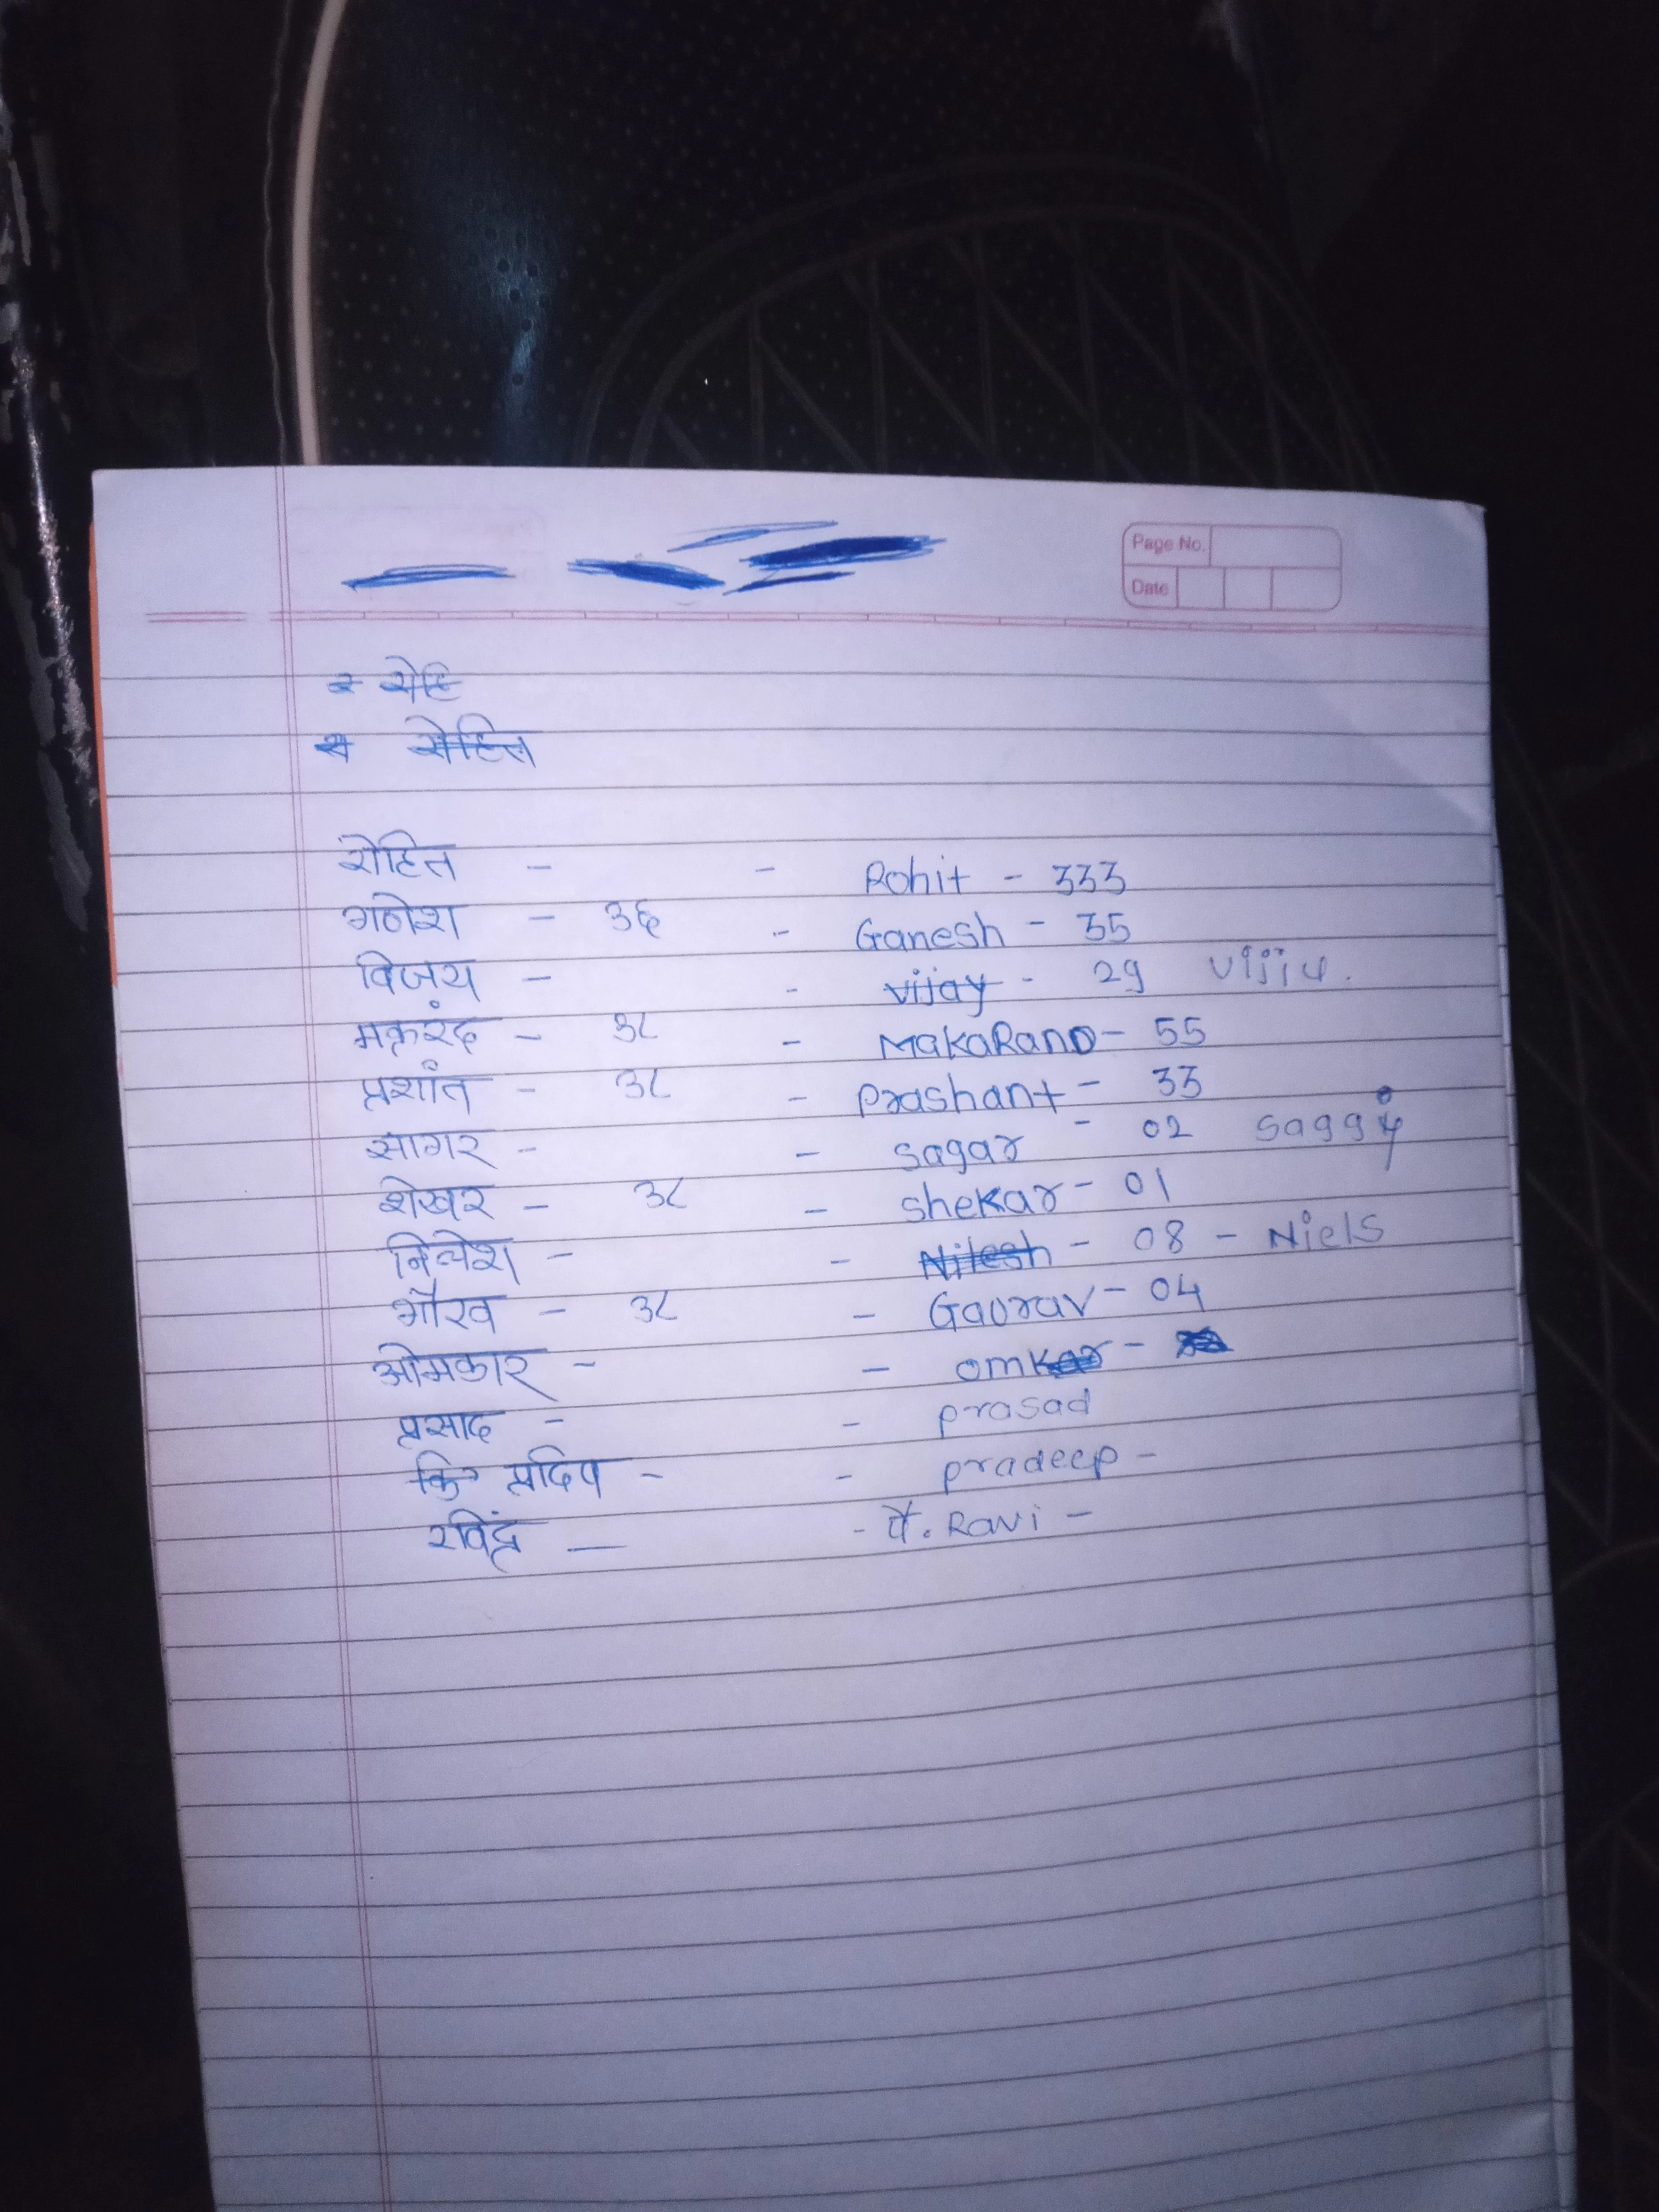 Page No.
Date
रोहि
रोहित
रोहित - - Rohit - 333
गणेश - ३६ - Ganesh - 35
विजय - - vijay - 29 Vijju.
मकरंद - ३८ - MakaRanD - 55
प्रशांत - ३८ - Prashant - 33
सागर - - sagar - 02 saggy
शेखर - ३८ - shekar - 01
निलेश - - Nilesh - 08 - Niels
गौरव - ३८ - Gaurav - 04
ओमकार - - omkar -
प्रसाद - - prasad
प्रदिप - - pradeep -
रविंद्र — - पै. Ravi -